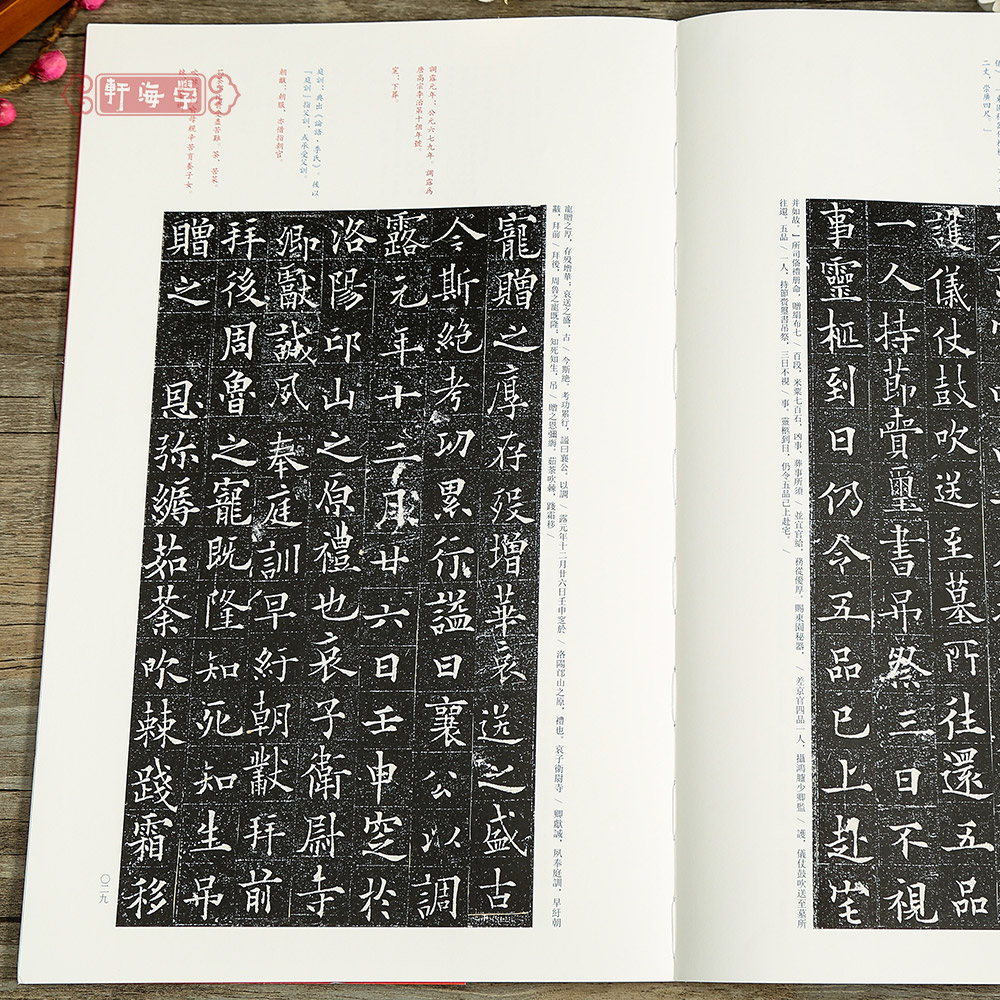 二丈，常廣四尺。」
護儀仗鼓吹送至墓所往還五品
一人持節賫璽書弔祭三日不視
事靈柩到日仍令五品已上赴宅
并如故。/ 所司俻禮册命，贈絹布七 / 百段，米粟七百石，凶事、葬事所須 / 並宜官給，務從優厚。賜東園秘器， / 差京官四品一人，攝鴻臚少卿監 / 護，儀仗鼓吹送至墓所
往還。五品 / 一人，持節賫璽書吊祭，三日不視 / 事。靈柩到日，仍令五品已上赴宅。 /
寵贈之厚，存殁增華；哀送之盛，古 / 今斯絶。考功累行，謚曰襄公。以調 / 露元年十二月廿六日壬申窆於 / 洛陽邙山之原，禮也。哀子衛尉寺 / 卿獻誠，夙奉庭訓，早紆朝
黻，拜前 / 拜後，周魯之寵既隆；知死知生，吊 / 贈之恩彌縟。茹荼吹棘，踐霜移 /
調露元年：公元六七九年。調露爲
唐高宗李治第十個年號。
窆：下葬。
庭訓：典出《論語·季氏》。後以
「庭訓」指父訓，或承受父訓。
朝黻：朝服，亦借指朝官。
寵贈之厚存殁增華哀送之盛古
今斯絶考功累行謚曰襄公以調
露元年十二月廿六日壬申窆於
洛陽邙山之原禮也哀子衛尉寺
卿獻誠夙奉庭訓早紆朝黻拜前
拜後周魯之寵既隆知死知生吊
贈之恩弥縟茹荼吹棘踐霜移
〇二九
軒海學